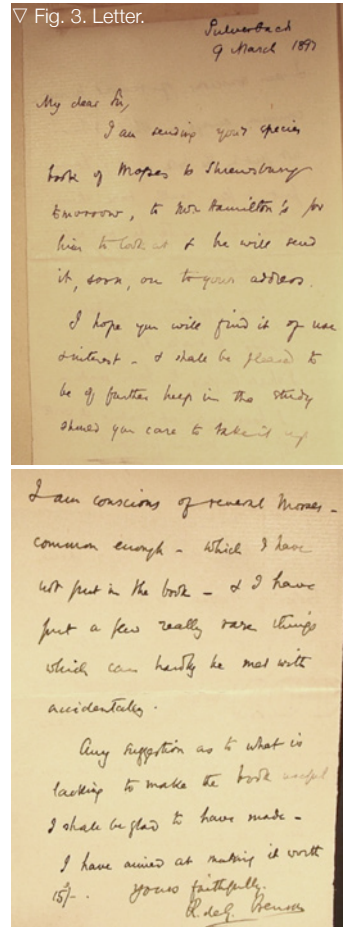 ▽ Fig. 3. Letter.
Pulverbach
9 March 1897
My dear Sir,
I am sending your species
book of Mosses to Shrewsbury
tomorrow, to Mr Hamilton's for
him to look at & he will send
it, soon, on to your address.
I hope you will find it of use
& interest - & shall be pleased to
be of further help in the study
should you care to take it up
I am conscious of several Mosses -
common enough - which I have
not put in the book - & I have
put a few really rare things
which can hardly be met with
accidentally.
Any suggestion as to what is
lacking to make the book useful
I shall be glad to have made -
I have aimed at making it worth
15/-. Yours faithfully.
R. de G. Benson